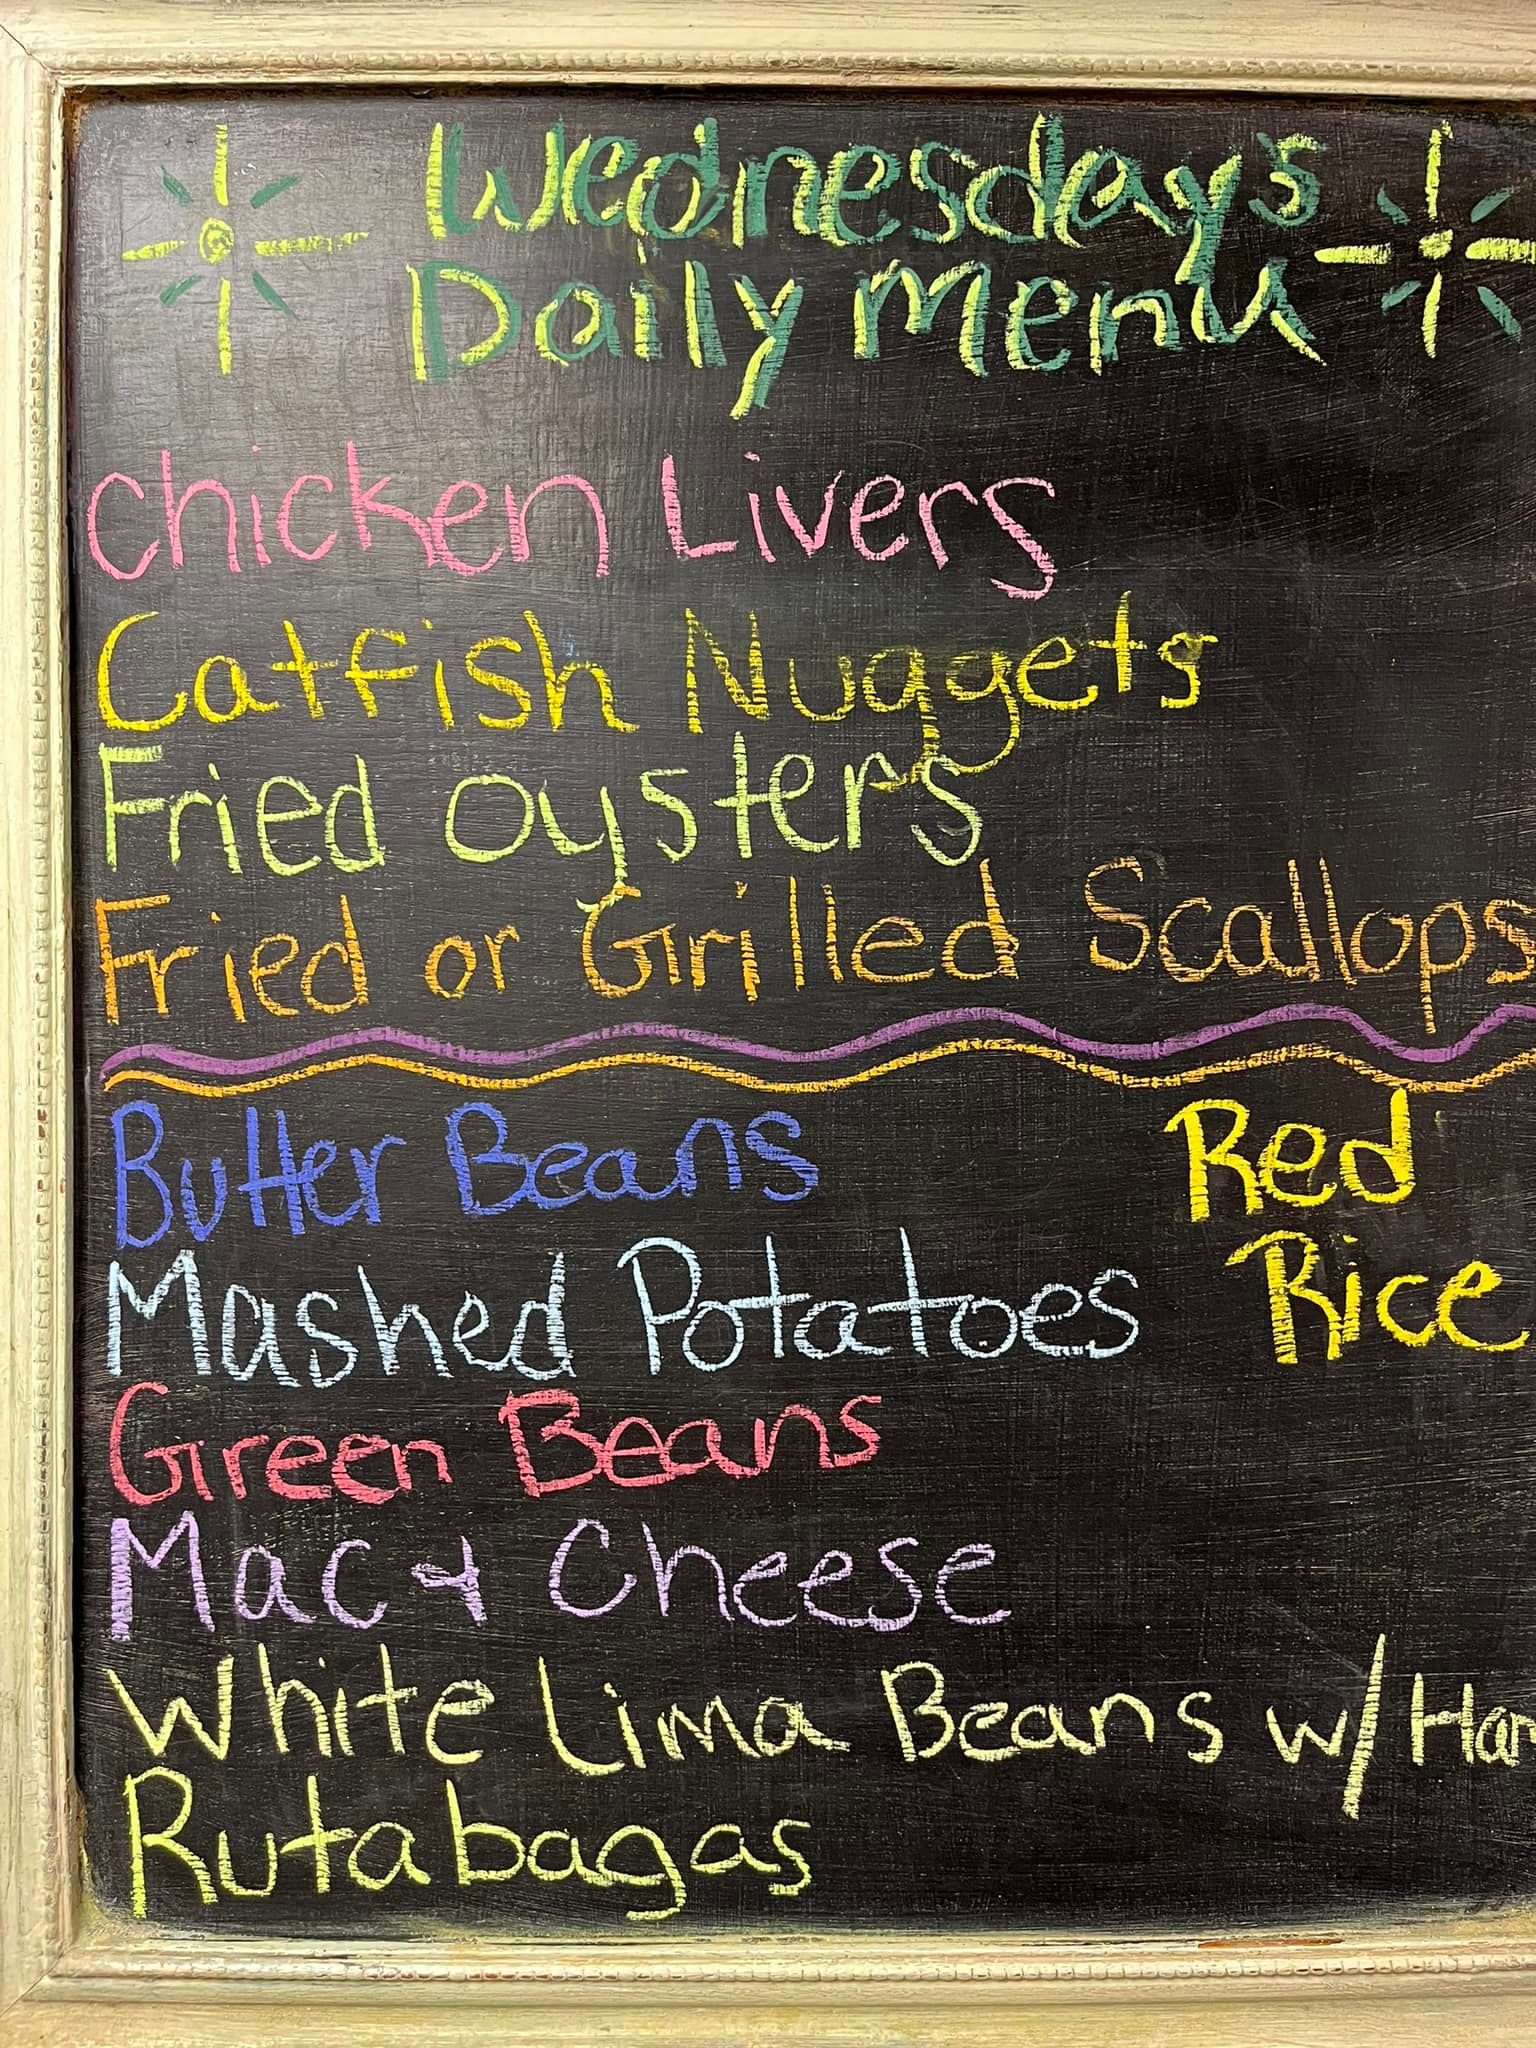 Wednesday's
Daily Menu
Chicken Livers
Catfish Nuggets
Fried Oysters
Fried or Grilled Scallops
Butter Beans
Mashed Potatoes
Green Beans
Mac & Cheese
White Lima Beans w/
Rutabagas
Red
Rice